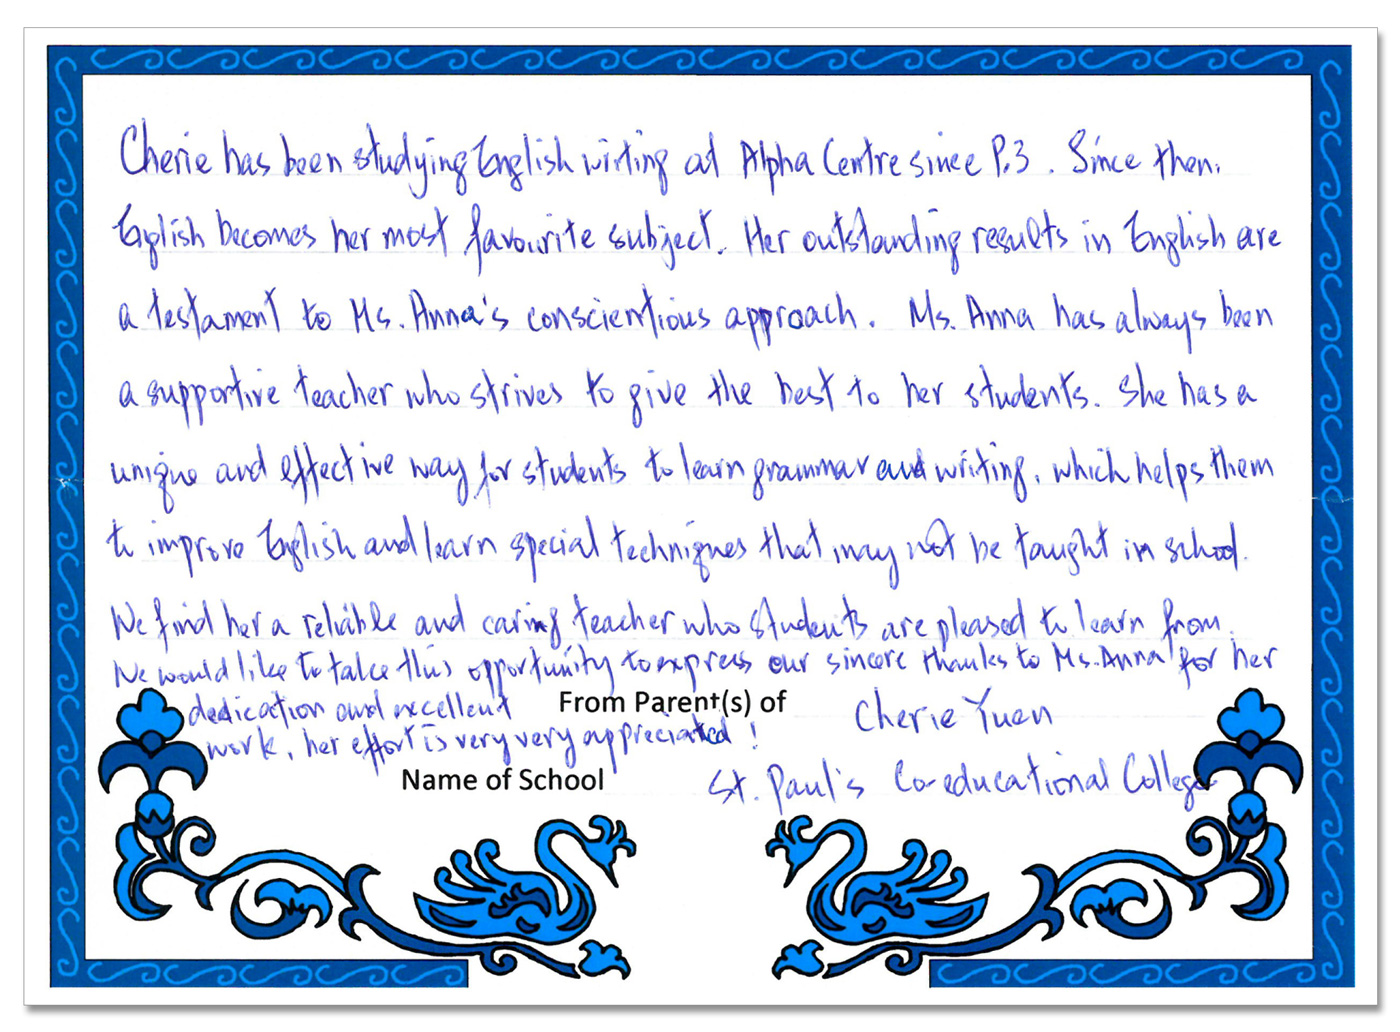 Cherie has been studying English writing at Alpha Centre since P.3. Since then,
English becomes her most favourite subject. Her outstanding results in English are
a testament to Ms. Anna's conscientious approach. Ms. Anna has always been
a supportive teacher who strives to give the best to her students. She has a
unique and effective way for students to learn grammar and writing, which helps them
to improve English and learn special techniques that may not be taught in school.
We find her a reliable and caring teacher who students are pleased to learn from.
We would like to take this opportunity to express our sincere thanks to Ms. Anna for her
dedication and excellent
work, her effort is very very appreciated!
From Parent(s) of Cherie Yuen
Name of School St. Paul's Co-educational College